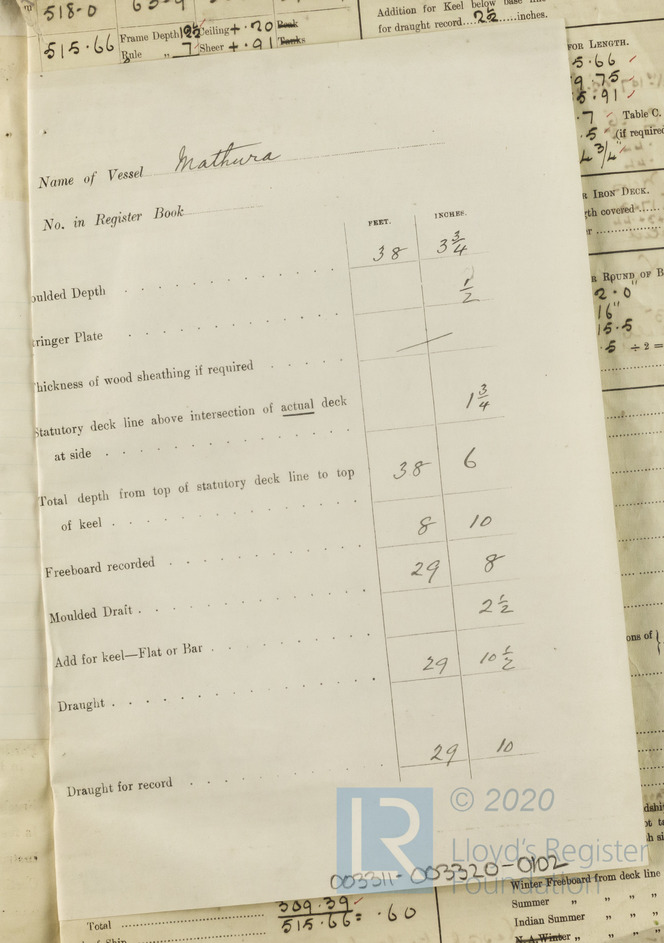 518·0
515·66 Frame Depth Ceiling + ·20 Peak
Rule „ 7 Sheer + ·91 Tanks
Addition for Keel below base line
for draught record....2½......inches.
FOR LENGTH.
5·66
9·75
5·91
·7 Table C.
·5 (if required
4¾"
R IRON DECK.
gth covered
R ROUND OF B
2·0"
16"
15·5
·5 ÷ 2 =
Name of Vessel Mathura
No. in Register Book
FEET. INCHES.
oulded Depth 38 3¾
tringer Plate ½
hickness of wood sheathing if required
Statutory deck line above intersection of actual deck
at side 1¾
Total depth from top of statutory deck line to top
of keel 38 6
Freeboard recorded 8 10
Moulded Draft 29 8
Add for keel—Flat or Bar 2½
Draught 29 10½
Draught for record 29 10
ons of
© 2020
LR
Lloyd's Register
Foundation
003311-003320-0102
Winter Freeboard from deck line
Summer „ „ „ „
Indian Summer „ „ „
N.A. Winter „ „ „ „
Total 309·39
515·66 = ·60